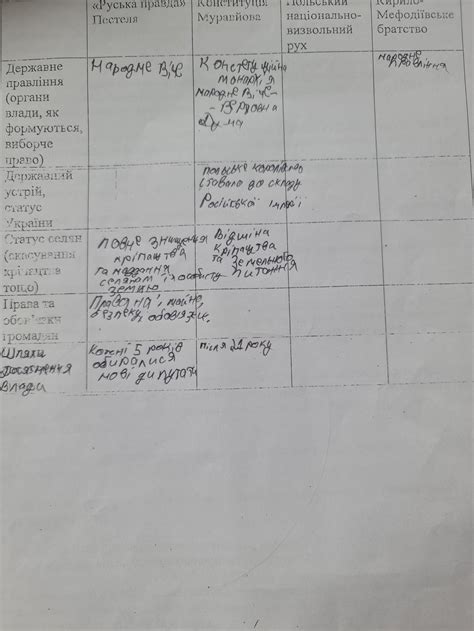 «Руська правда»
Пестеля
Конституція
Муравйова
Польський
національно-
визвольний
рух
Кирило-
Мефодіївське
братство
Державне
правління
(органи
влади, як
формуються,
виборче
право)
Народне Віче
Конституційна
монархія
народне Віче-
- Верховна
Дума
народне
правління
Державний
устрій,
статус
України
польське
до складу
Російської імперії
Статус селян
(скасування
кріпацтв
тощо)
повне знищення
кріпацтва
та надання
селянам
землю
Відміна
кріпацтва
та земельного
питання
Права та
обов'язки
громадян
Права на майно,
безпеку, обовязки.
Шляхи
досягнення
Влади
Кожні 5 років
обиралися
нові депутати
після 21 року